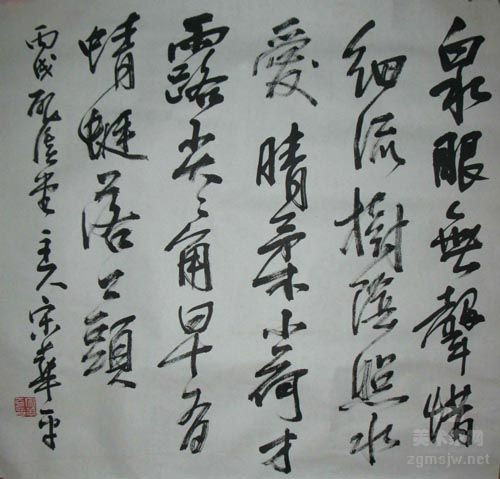 泉眼無聲惜
細流樹陰照水
愛晴柔小荷才
露尖々角早有
蜻蜓落上頭
丙戌堂主人宋華平
美术家网
zgmsjw.net